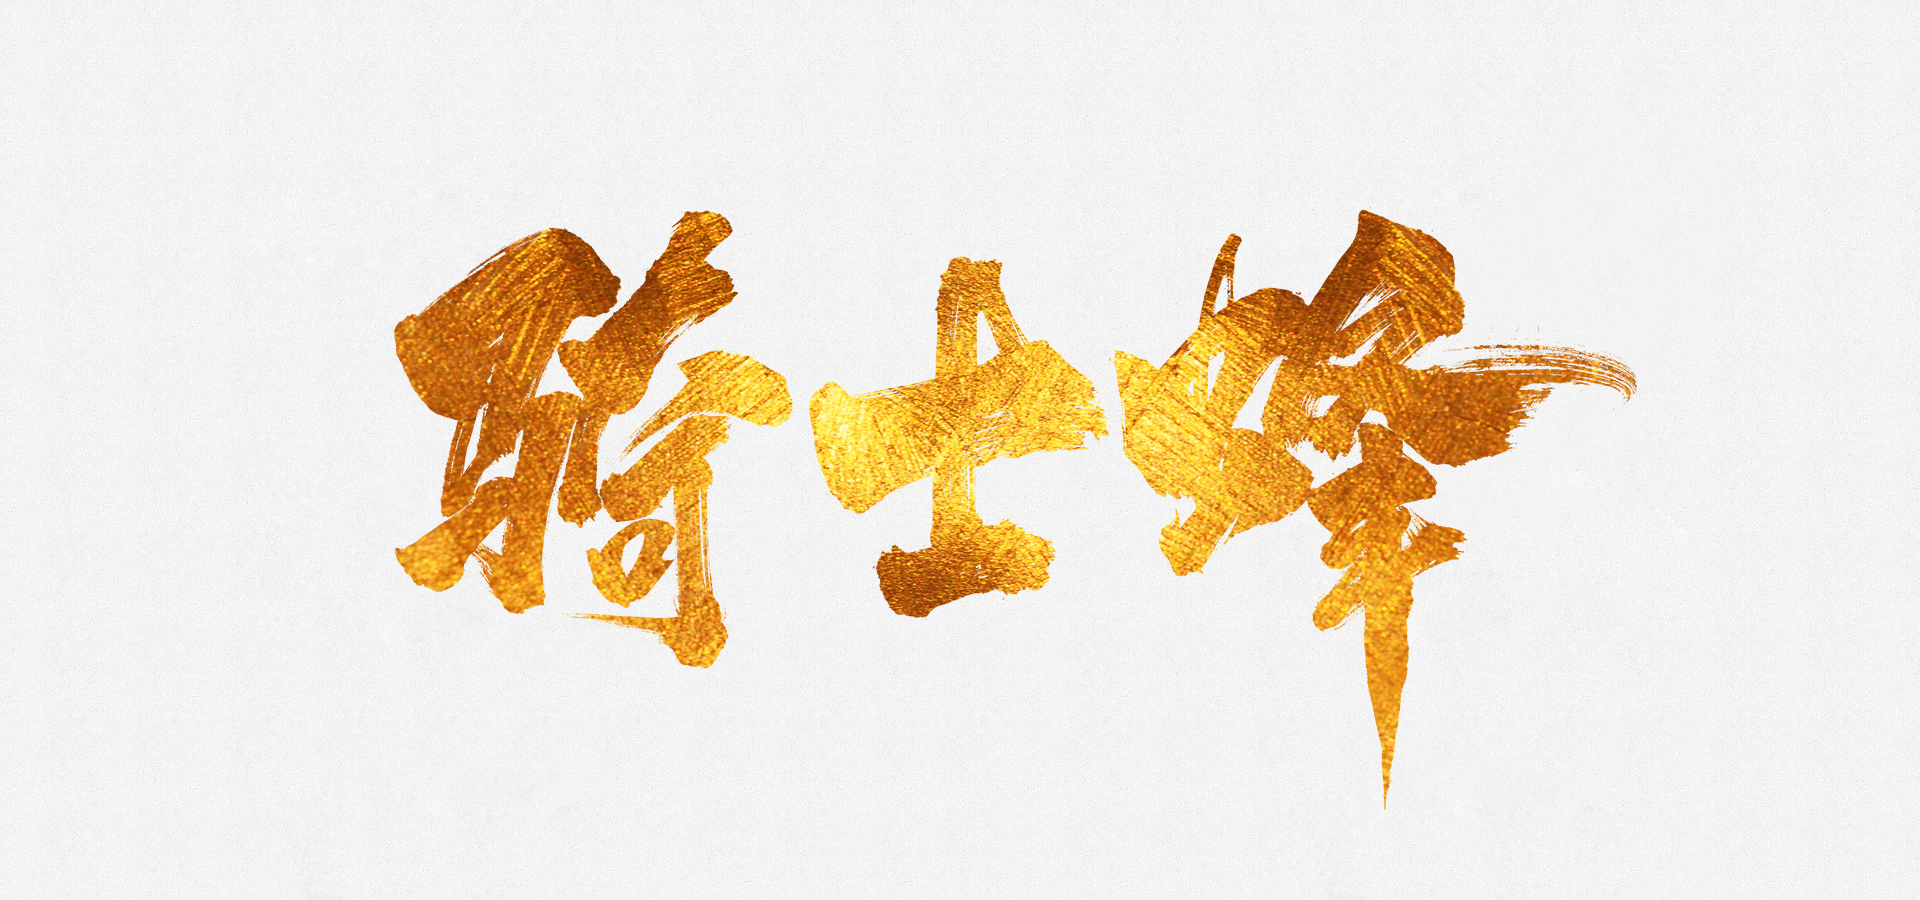 骑士蜂